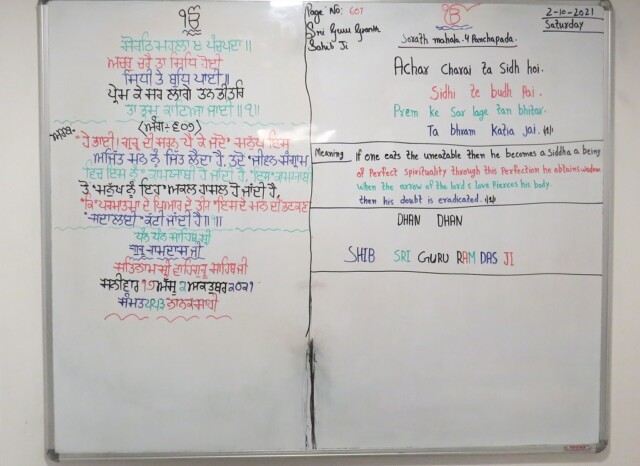 ੴ
ਸੋਰਠਿ ਮਹਲਾ ੪ ਪੰਚਪਦਾ ॥
ਅਚਰੁ ਚਰੈ ਤਾ ਸਿਧਿ ਹੋਈ
ਸਿਧੀ ਤੇ ਬੁਧਿ ਪਾਈ ॥
ਪ੍ਰੇਮ ਕੇ ਸਰ ਲਾਗੇ ਤਨ ਭੀਤਰਿ
ਤਾ ਭ੍ਰਮੁ ਕਾਟਿਆ ਜਾਈ ॥੧॥
(ਅੰਗ: ੬੦੭)
ਅਰਥ: "ਹੇ ਭਾਈ! ਗੁਰੂ ਦੀ ਸਰਨ ਪੈ ਕੇ ਜਦੋਂ ਮਨੁੱਖ ਇਸ
ਅਜਿੱਤ ਮਨ ਨੂੰ ਜਿੱਤ ਲੈਂਦਾ ਹੈ, ਤਦੋਂ ਜੀਵਨ ਸੰਗ੍ਰਾਮ
ਵਿਚ ਇਸ ਨੂੰ ਕਾਮਯਾਬੀ ਹੋ ਜਾਂਦੀ ਹੈ, ਇਸ ਕਾਮਯਾਬੀ
ਤੋਂ ਮਨੁੱਖ ਨੂੰ ਇਹ ਅਕਲ ਹਾਸਲ ਹੋ ਜਾਂਦੀ ਹੈ,
ਕਿ ਪਰਮਾਤਮਾ ਦੇ ਪਿਆਰ ਦੇ ਤੀਰ ਇਸ ਦੇ ਮਨ ਦੀ ਭਟਕਣਾ
ਸਦਾ ਲਈ ਕੱਟੀ ਜਾਂਦੀ ਹੈ॥੧॥
ਧੰਨ ਧੰਨ ਸਾਹਿਬ ਸ੍ਰੀ
ਗੁਰੂ ਰਾਮਦਾਸ ਜੀ
ਸਤਿਨਾਮ ਸ੍ਰੀ ਵਾਹਿਗੁਰੂ ਸਾਹਿਬ ਜੀ
ਸ਼ਨੀਵਾਰ ੧੭ ਅੱਸੂ ੨ ਅਕਤੂਬਰ ੨੦੨੧
ਸੰਮਤ ੫੫੩ ਨਾਨਕਸ਼ਾਹੀ
Page No: 607
Sri Guru Granth
Sahib Ji
ੴ
2-10-2021
Saturday
Sorath mahala 4 Panchapada.
Achar Charai ta Sidh hoi.
Sidhi te budh Pai.
Prem ke Sar lage tan bhitar.
Ta bhram Katia jai. ॥1॥
Meaning If one eats the uneatable then he becomes a Siddha a being
of Perfect Spirituality through this Perfection he obtains wisdom
when the arrow of the lord's love Pierces his body.
then his doubt is eradicated. ॥1॥
DHAN DHAN
SHIB SRI GURU RAM DAS JI